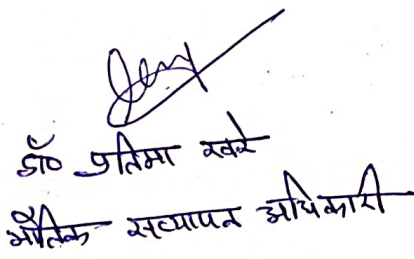 डॉ० प्रतिमा खरे
भौतिक सत्यापन अधिकारी